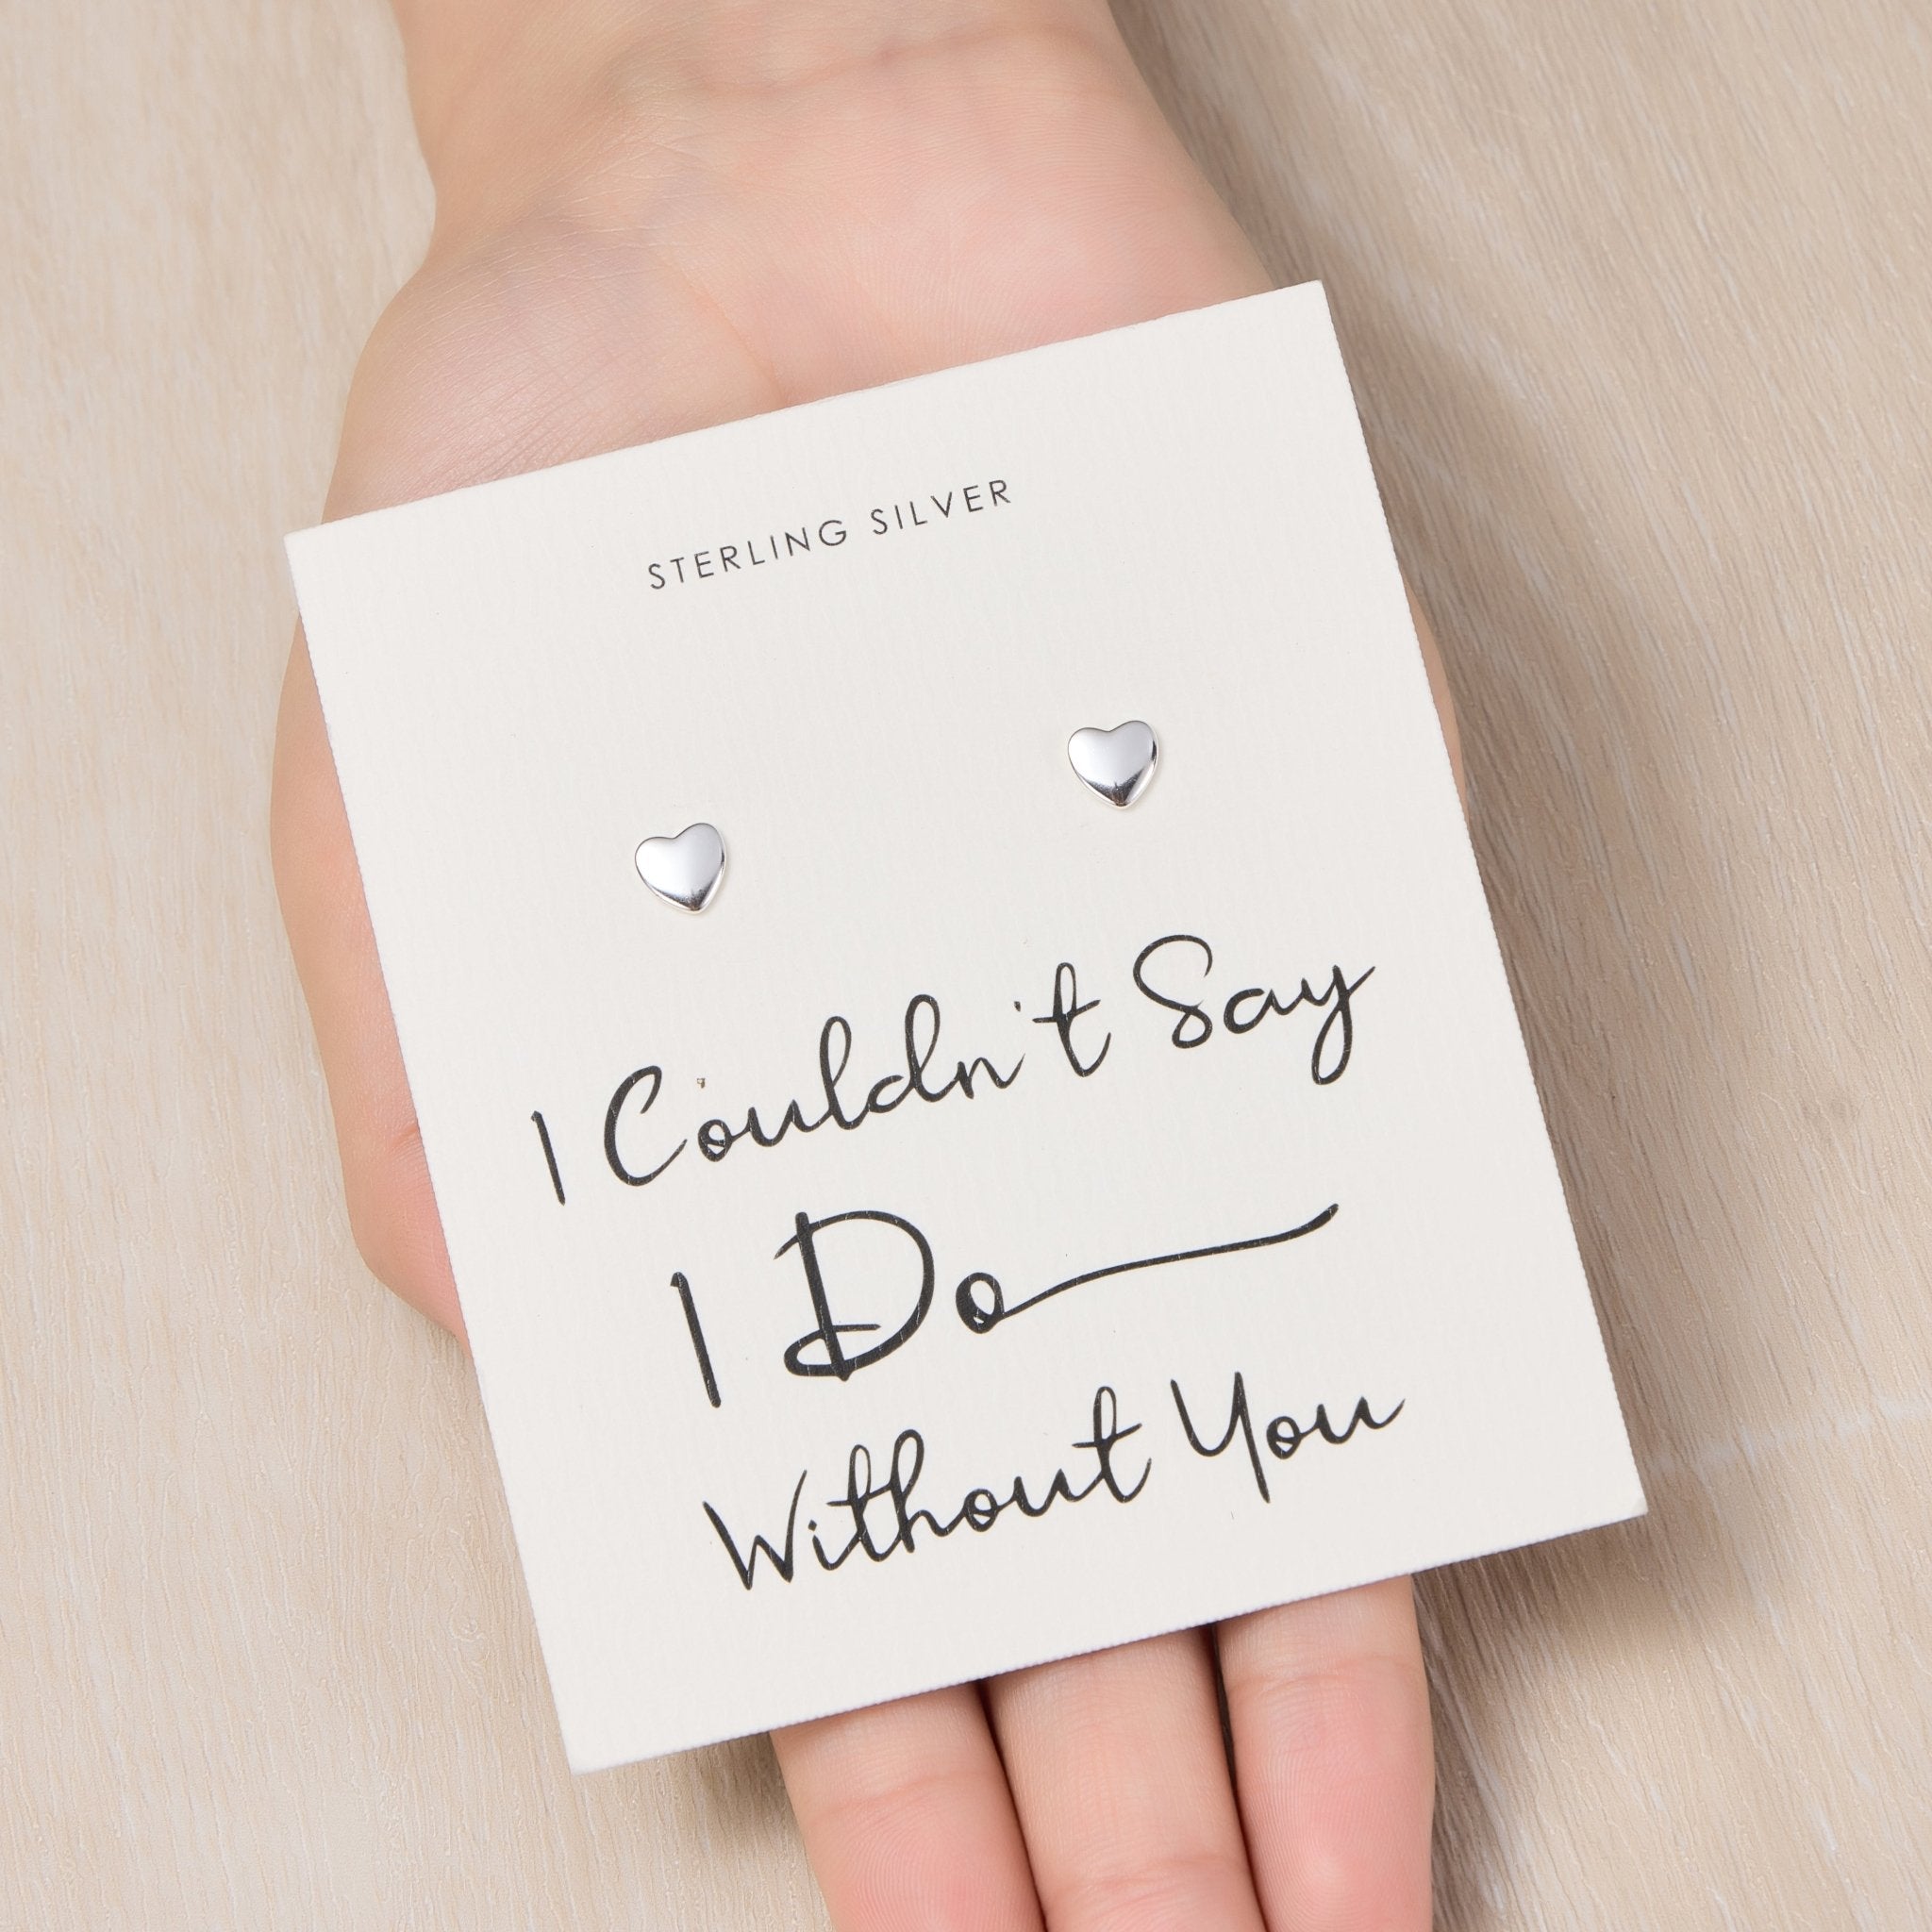 STERLING SILVER
I Couldn't Say
I Do
Without You